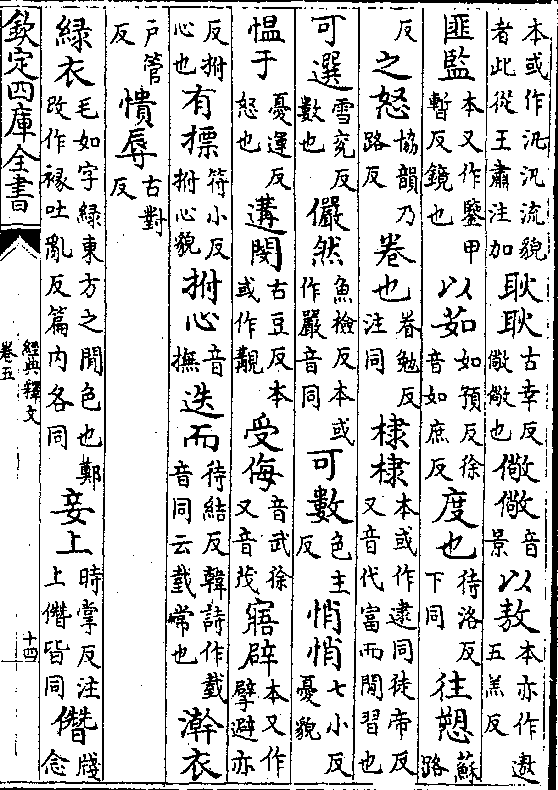 本或作汎汎流貌者此從王肅注加耿耿古幸反儆儆也儆儆音景以敖本亦作遨五羔反
匪監本又作鑒甲暫反鏡也以茹如預反徐音如庶反度也待洛反下同往愬蘇路
反之怒協韻乃路反卷也眷勉反注同棣棣本或作逮同徒帝反又音代富而閒習也
可選雪兖反數也儼然魚檢反本或作嚴音同可數色主反悄悄七小反憂貌
愠于憂運反怒也遘閔古豆反本或作覯受侮音武徐又音茂寤辟本又作擘避亦
反拊心也有摽符小反拊心貌拊心音撫迭而待結反韓詩作臷音同云臷常也澣衣
戸管反憒辱古對反
緑衣毛如字緑東方之閒色也鄭改作褖吐亂反篇内各同妾上時掌反注上僭皆同僭牋念
欽定四庫全書
經典釋文
卷五
十四